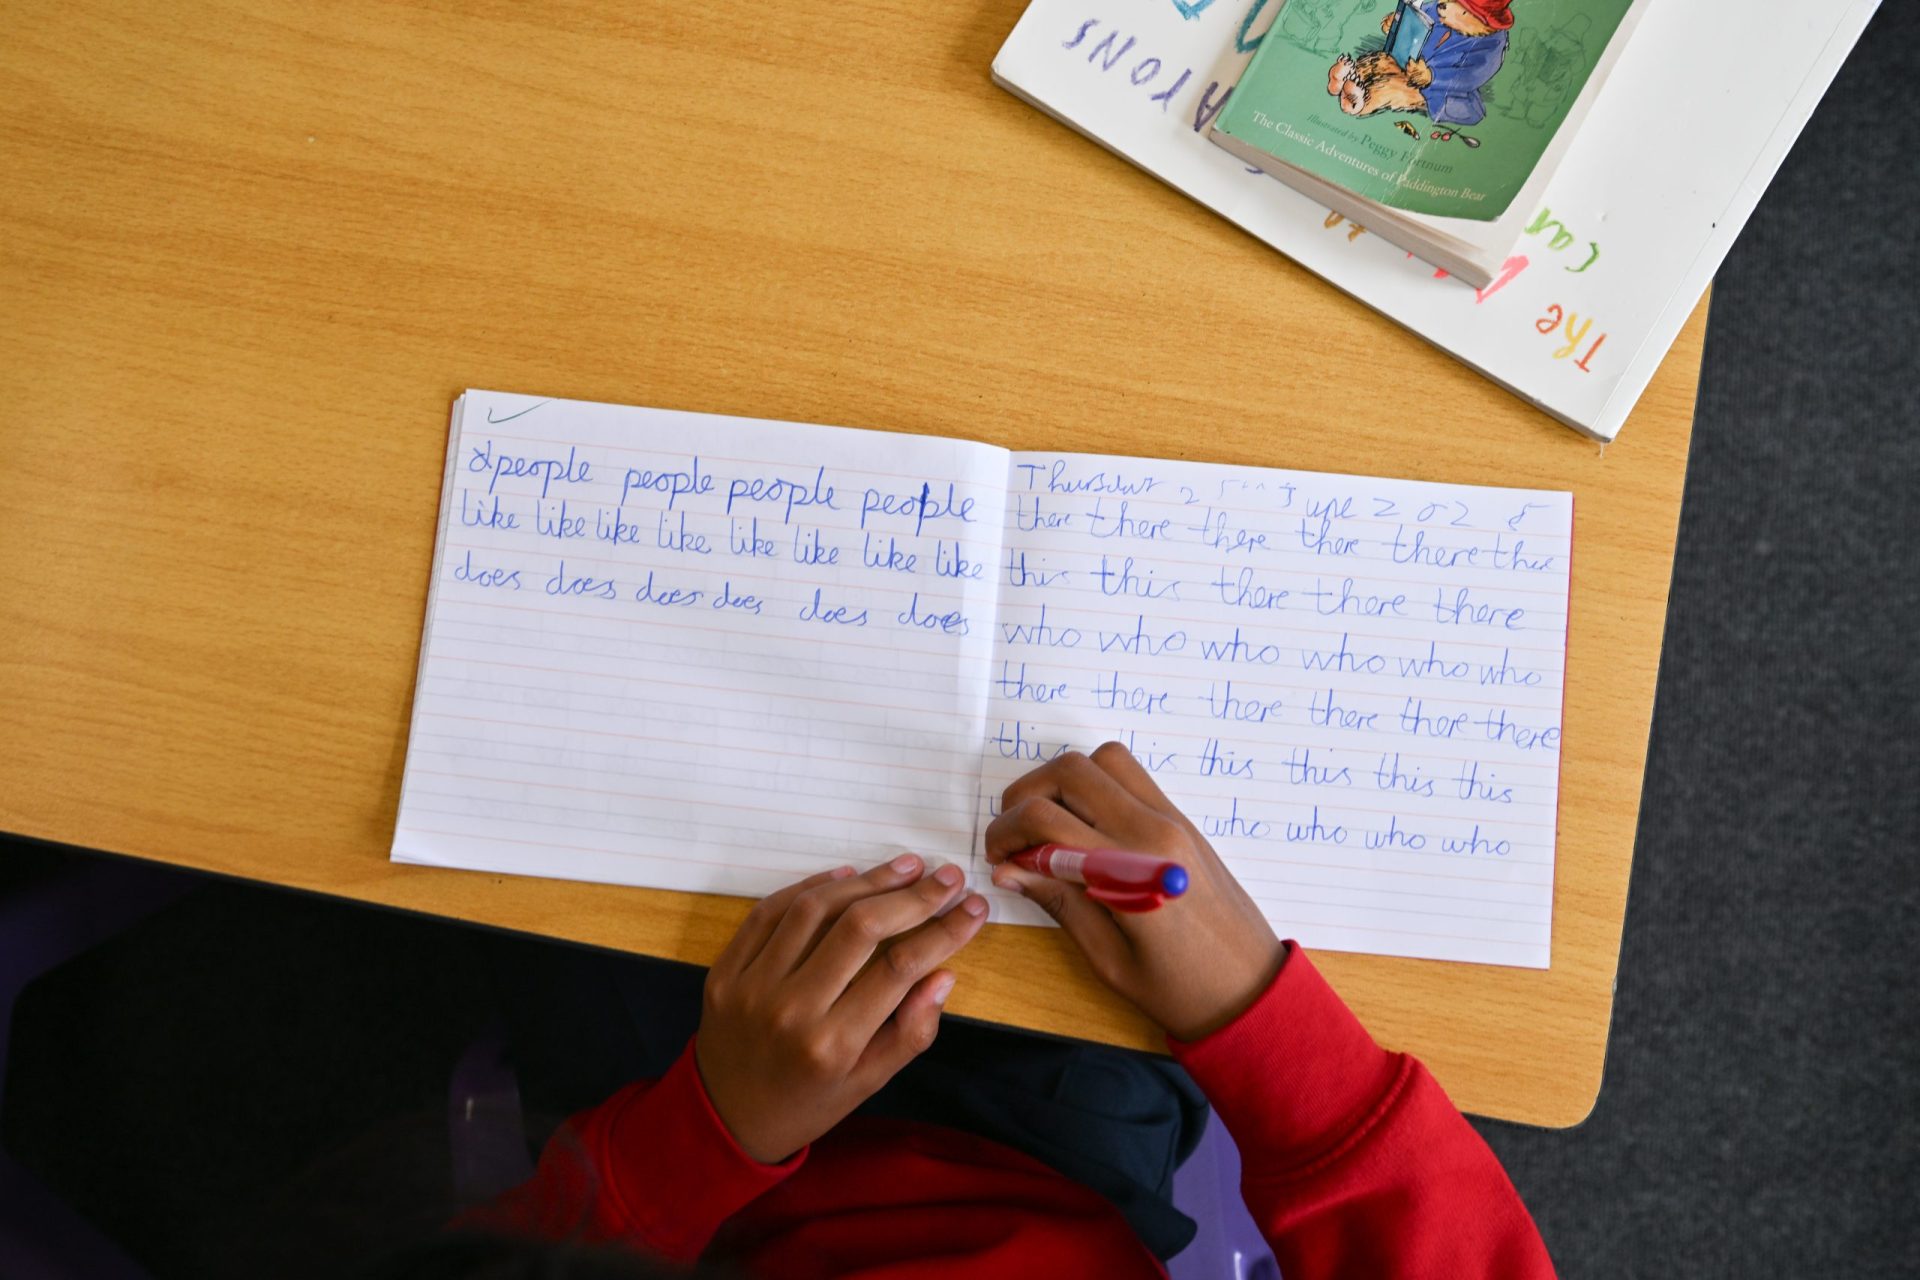 people people people people
like like like like like like like like
does does does does does does
Thursday June 2025
there there there there there there
this this there there there
who who who who who who
there there there there there there
this this this this this this
who who who who
Illustrated by Peggy Fortnum
The Classic Adventures of Paddington Bear
The